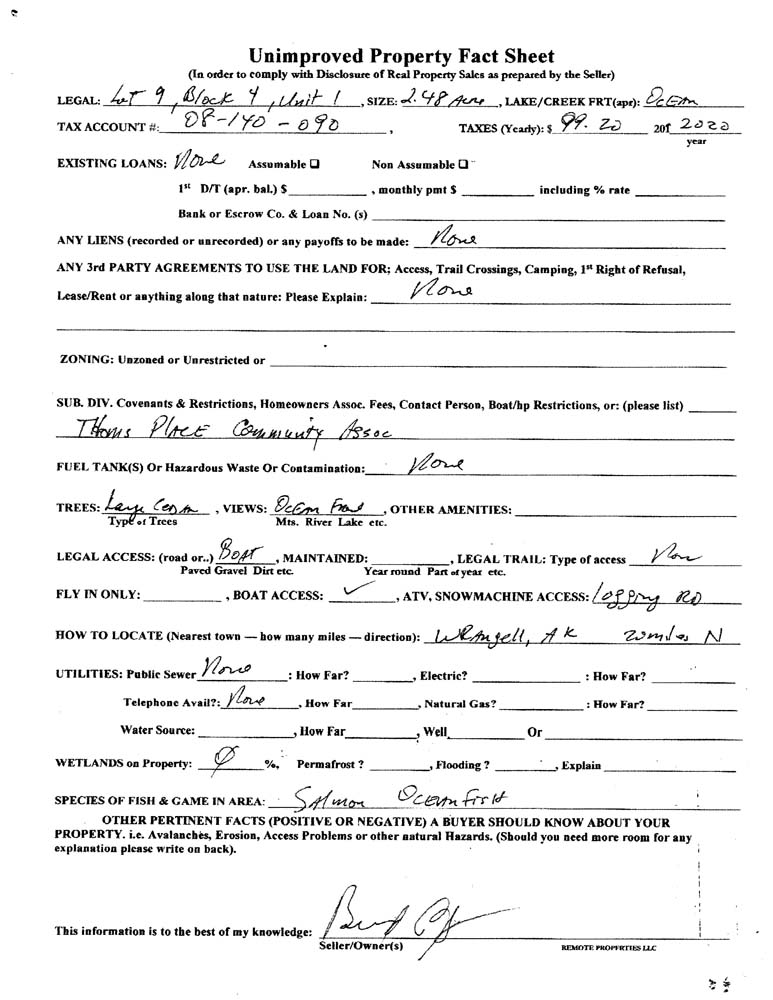 Unimproved Property Fact Sheet
(In order to comply with Disclosure of Real Property Sales as prepared by the Seller)
LEGAL: Lot 9, Block 4, Unit 1, SIZE: 2.48 Acre, LAKE/CREEK FRT(apr): OcEAn
TAX ACCOUNT #: 08-140-090, TAXES (Yearly): $ 99.20 201 2020
year
EXISTING LOANS: None Assumable ☐ Non Assumable ☐
1st D/T (apr. bal.) $ ____________, monthly pmt $ ____________ including % rate ____________
Bank or Escrow Co. & Loan No. (s) ____________
ANY LIENS (recorded or unrecorded) or any payoffs to be made: None
ANY 3rd PARTY AGREEMENTS TO USE THE LAND FOR; Access, Trail Crossings, Camping, 1st Right of Refusal,
Lease/Rent or anything along that nature: Please Explain: None
ZONING: Unzoned or Unrestricted or ____________
SUB. DIV. Covenants & Restrictions, Homeowners Assoc. Fees, Contact Person, Boat/hp Restrictions, or: (please list) ________
Thoms PlAcE Community Assoc
FUEL TANK(S) Or Hazardous Waste Or Contamination: None
TREES: Large, VIEWS: OcEAn Front, OTHER AMENITIES: ____________
Type of Trees Mts. River Lake etc.
LEGAL ACCESS: (road or..) BoAT, MAINTAINED: ____________, LEGAL TRAIL: Type of access None
Paved Gravel Dirt etc. Year round Part of year etc.
FLY IN ONLY: ____________, BOAT ACCESS: ✓, ATV, SNOWMACHINE ACCESS: logging RD
HOW TO LOCATE (Nearest town — how many miles — direction): WRAngell, AK 20 miles N
UTILITIES: Public Sewer None: How Far? ________, Electric? ____________: How Far? ________
Telephone Avail?: None, How Far________, Natural Gas? ____________: How Far? ________
Water Source: ____________, How Far________, Well________ Or ____________
WETLANDS on Property: Ø %, Permafrost ? ________, Flooding ? ________, Explain ____________
SPECIES OF FISH & GAME IN AREA: SAlmon OcEAn Fish
OTHER PERTINENT FACTS (POSITIVE OR NEGATIVE) A BUYER SHOULD KNOW ABOUT YOUR
PROPERTY. i.e. Avalanches, Erosion, Access Problems or other natural Hazards. (Should you need more room for any
explanation please write on back).
This information is to the best of my knowledge:
Seller/Owner(s) REMOTE PROPERTIES LLC